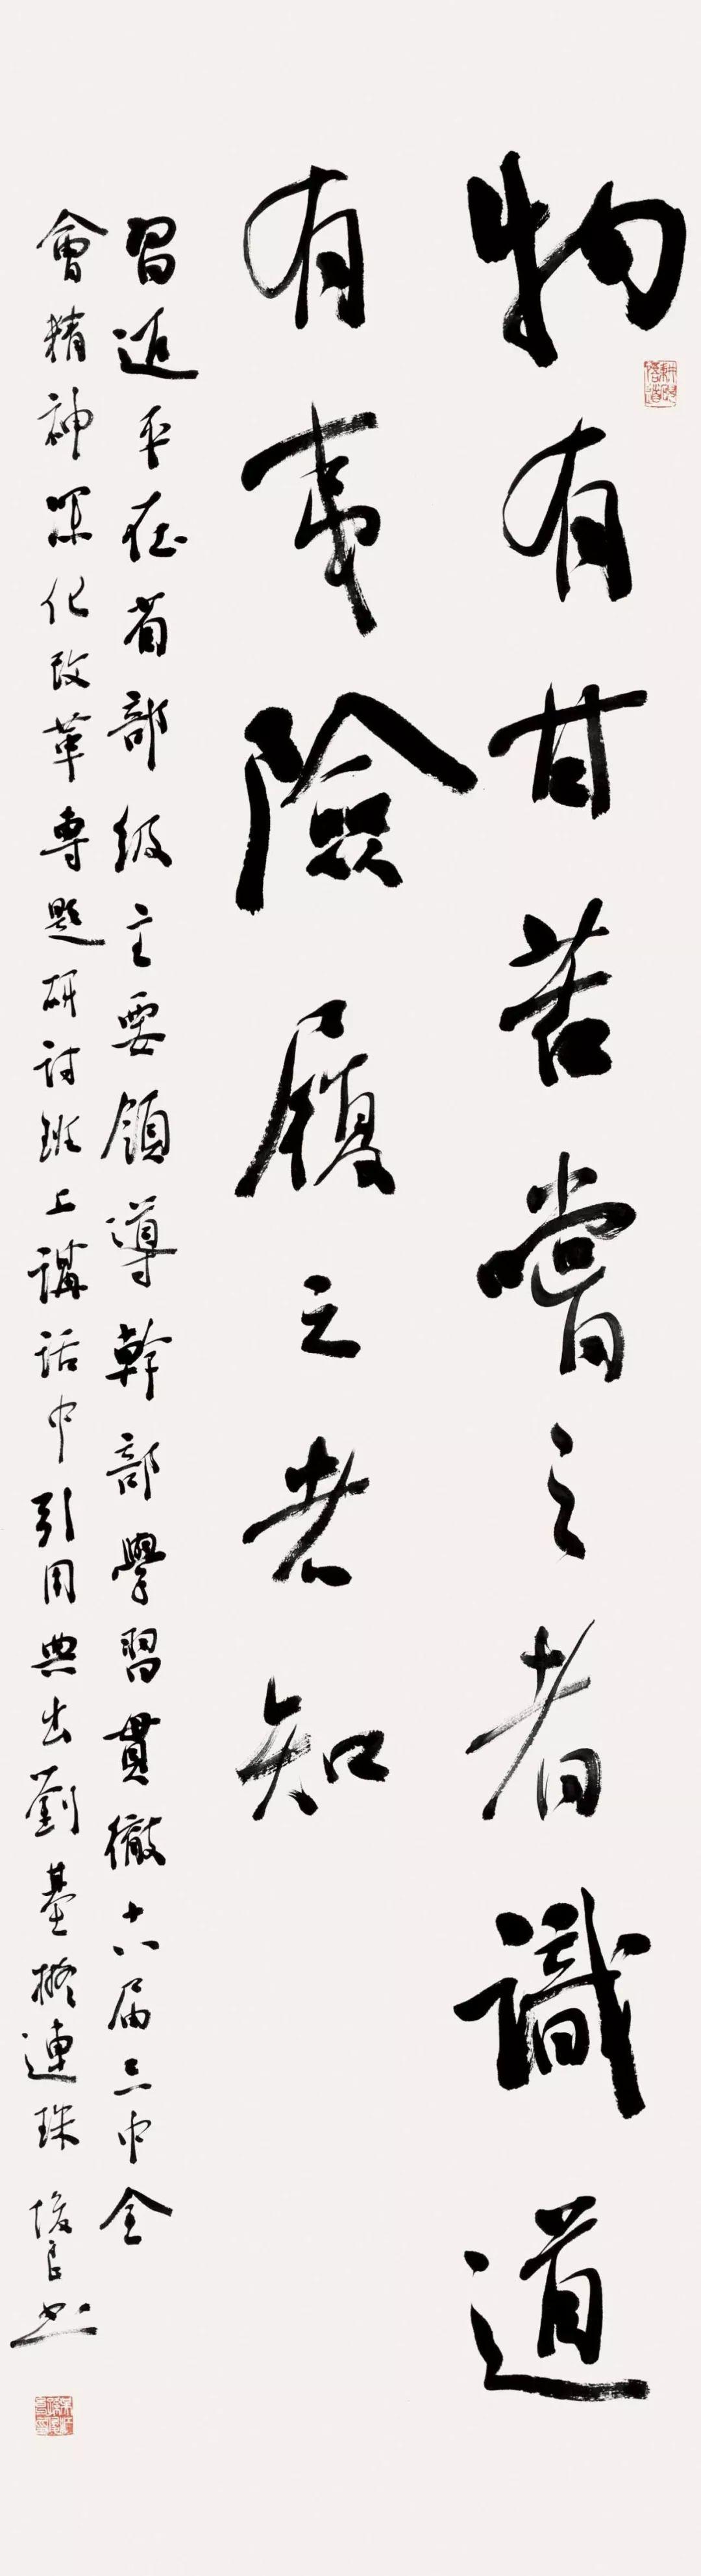 物有甘苦嘗之者識道
有夷險履之者知
習近平在省部級主要領導幹部學習貫徹十八届三中全
會精神深化改革專題研討班上講話中引用典出劉基擬連珠 俊良书